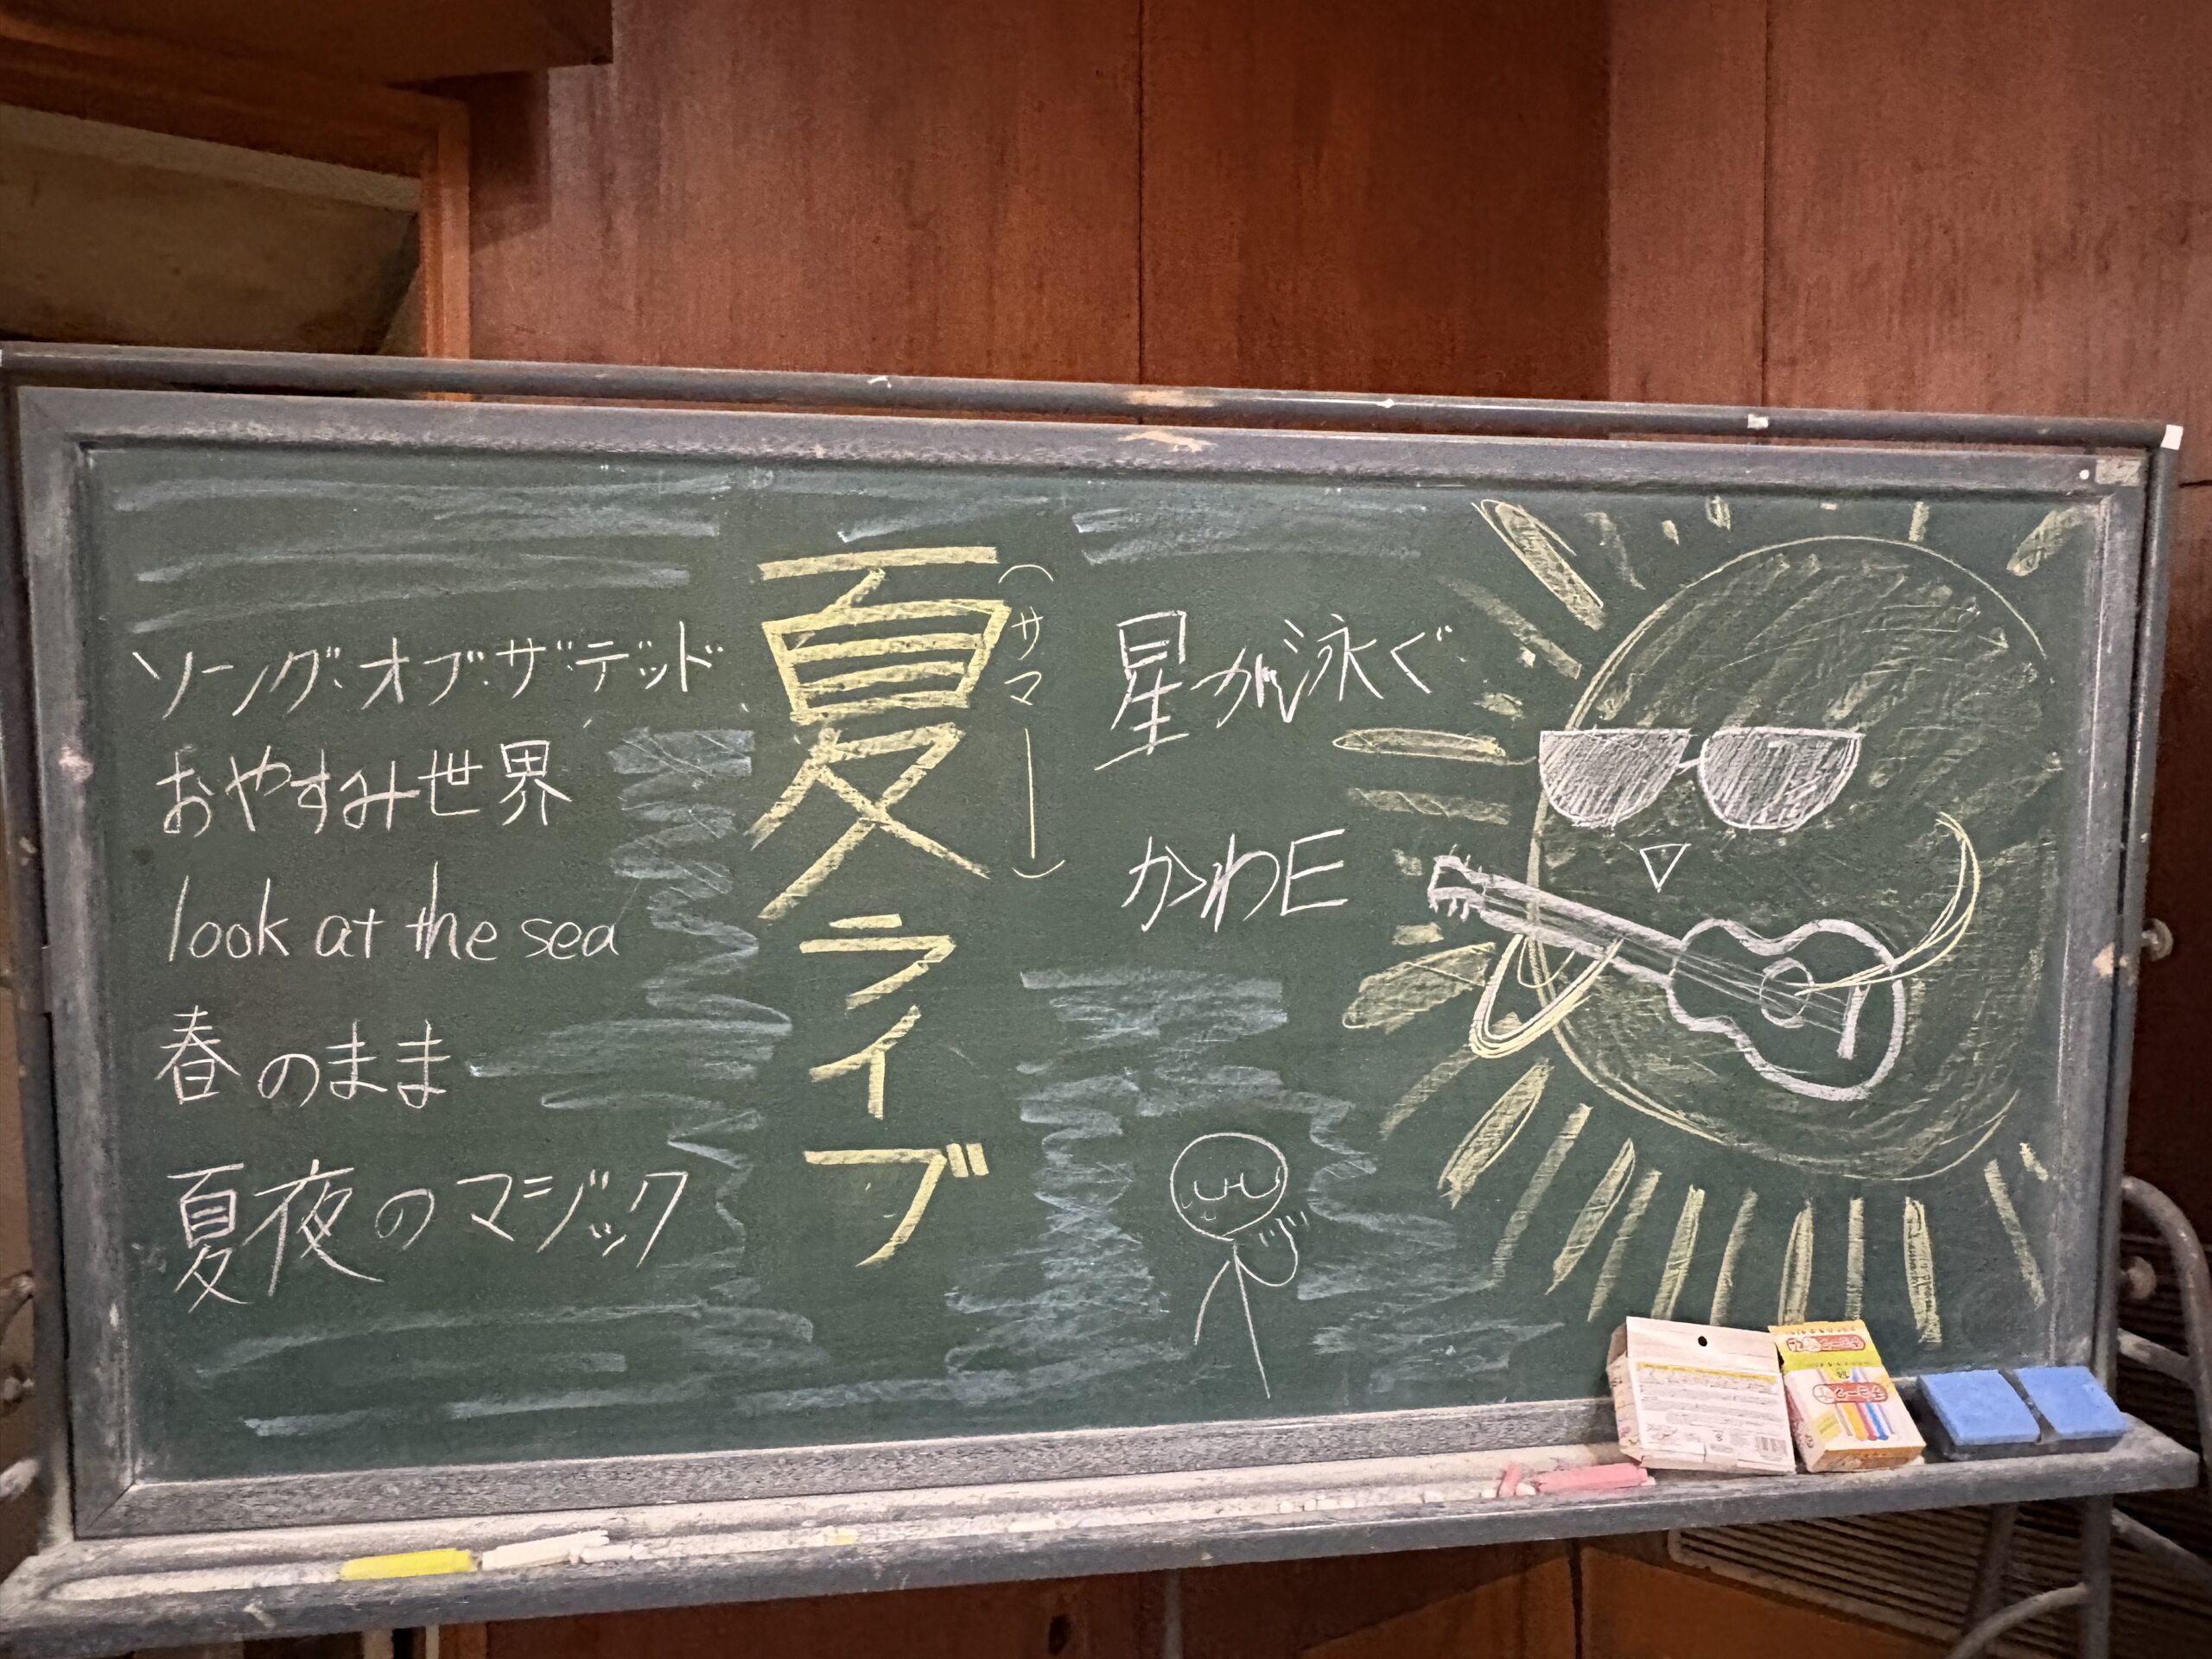 ソング・オブ・ザ・デッド
おやすみ世界
look at the sea
春のまま
夏夜のマジック
夏ライブ
（サマー）
星が泳ぐ
かわE